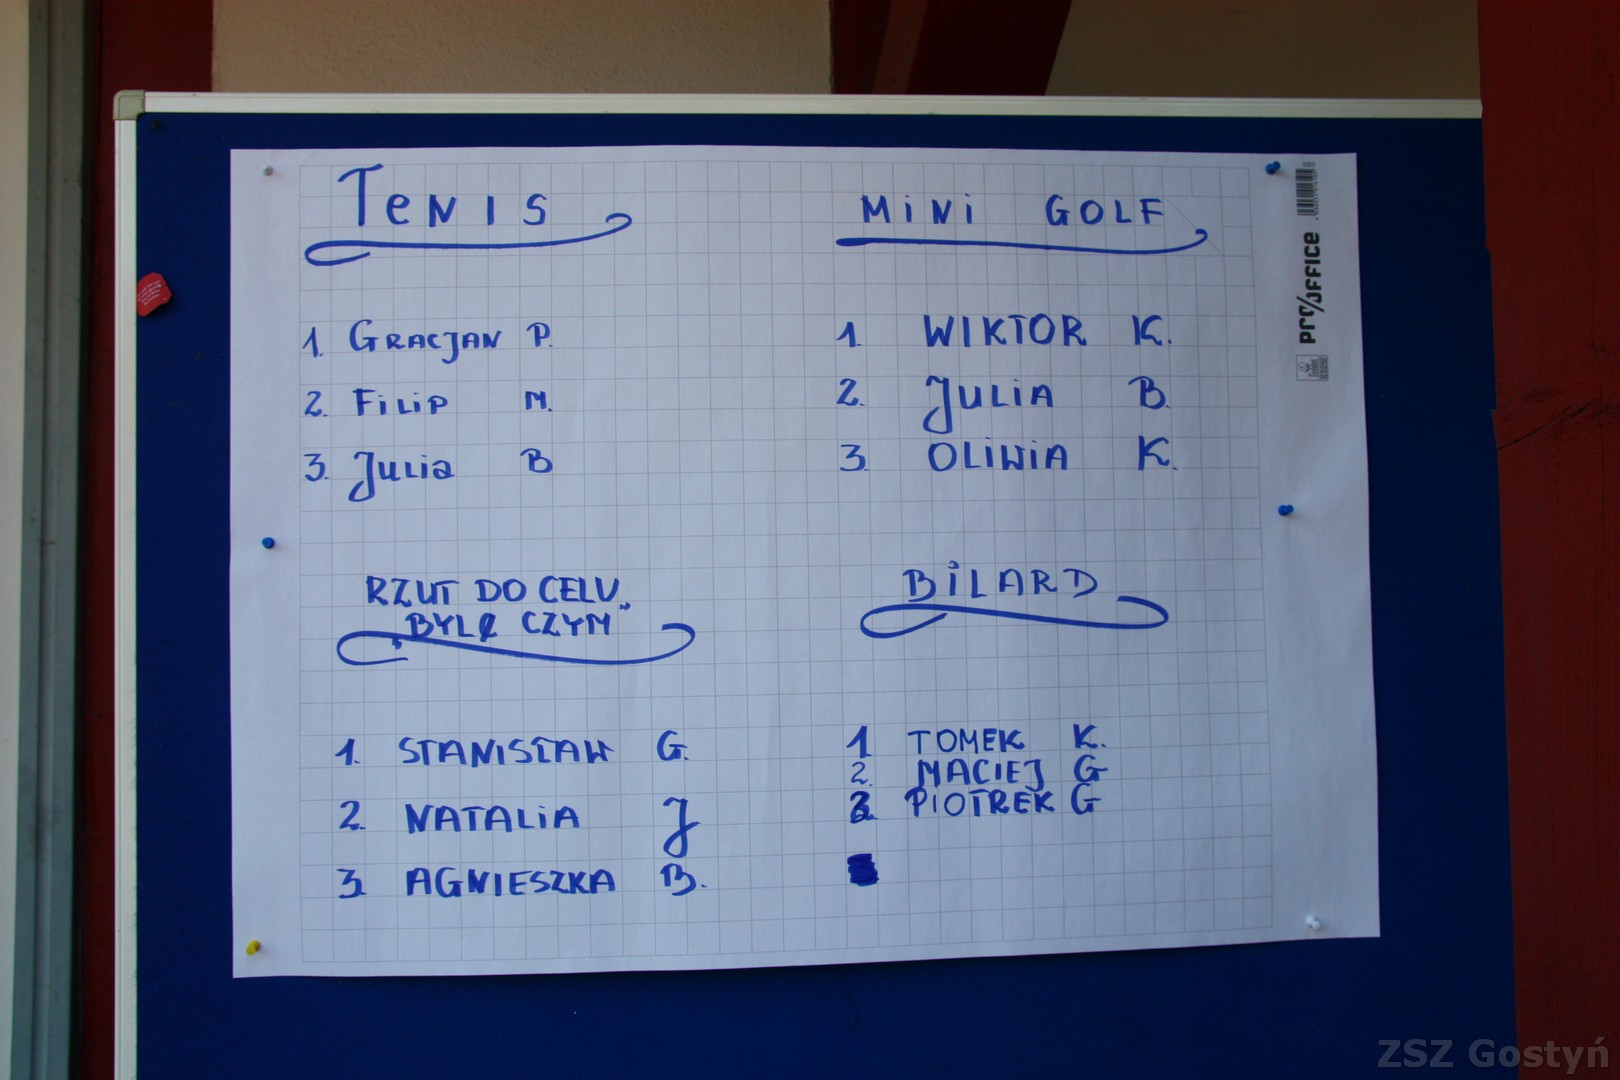 TeNIS
1. GRACJAN P.
2. FiLiP M.
3. JULia B
MiNi GOLF
1. WIKTOR K.
2. JULiA B.
3. OLiWiA K.
RZUT DO CELU
„BYLE CZYM"
1. STANISŁAW G.
2. NATALiA J
3. AGNIESZKA B.
BiLARD
1 TOMEK K.
2. MACIEJ G
3. PiOTREK G
Pro/OFFICE
ZSZ Gostyń